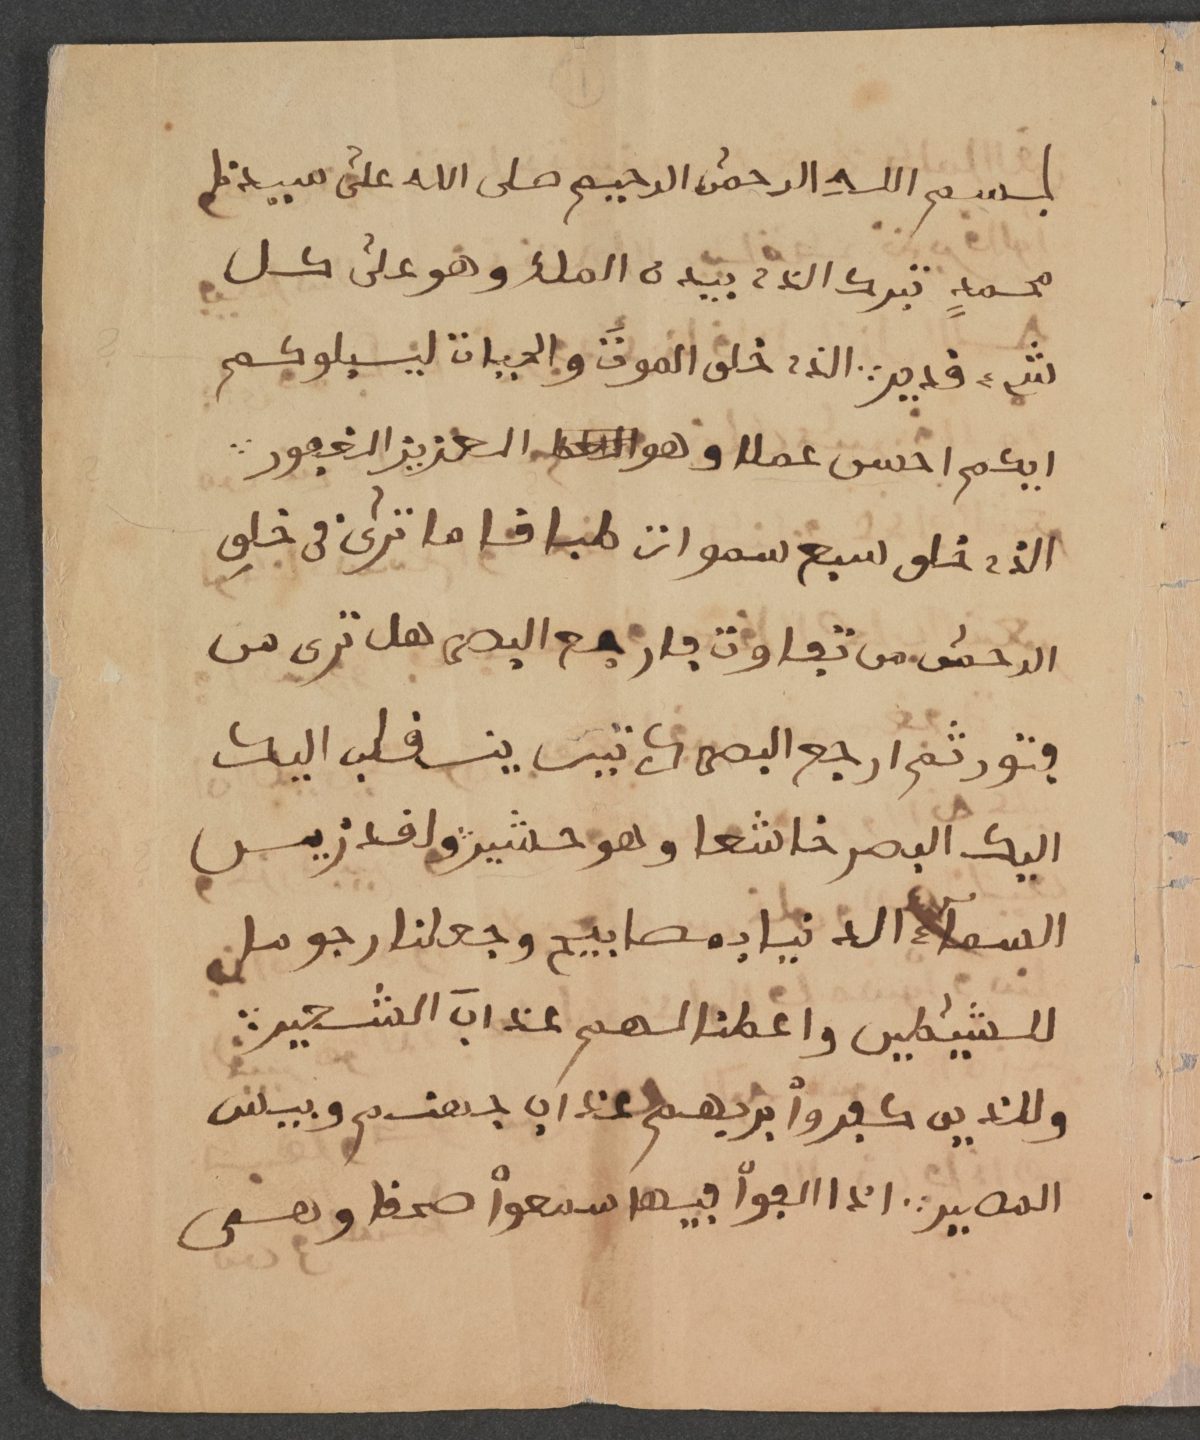 بسم الله الرحمن الرحيم صلى الله على سيدنا
محمدٍ تبرك الذى بيده الملك وهو على كل
شىء قدير الذى خلق الموت والحيات ليبلوكم
ايكم احسن عملا وهو العزيز الغفور
الذى خلق سبع سموات طباقا ما ترى فى خلق
الرحمن من تفاوت فارجع البصر هل ترى من
فتور ثم ارجع البصر ينقلب اليك
اليك البصر خاشعا وهو حشير ولقد زين
السماء الدنيا بمصابيح وجعلنا رجوما
للشيطين واعطنا لهم عذاب الشعير
وللذين كفروا بربهم عذاب جهنم وبيس
المصير اذا القوا فيها سمعوا صحقا وهى